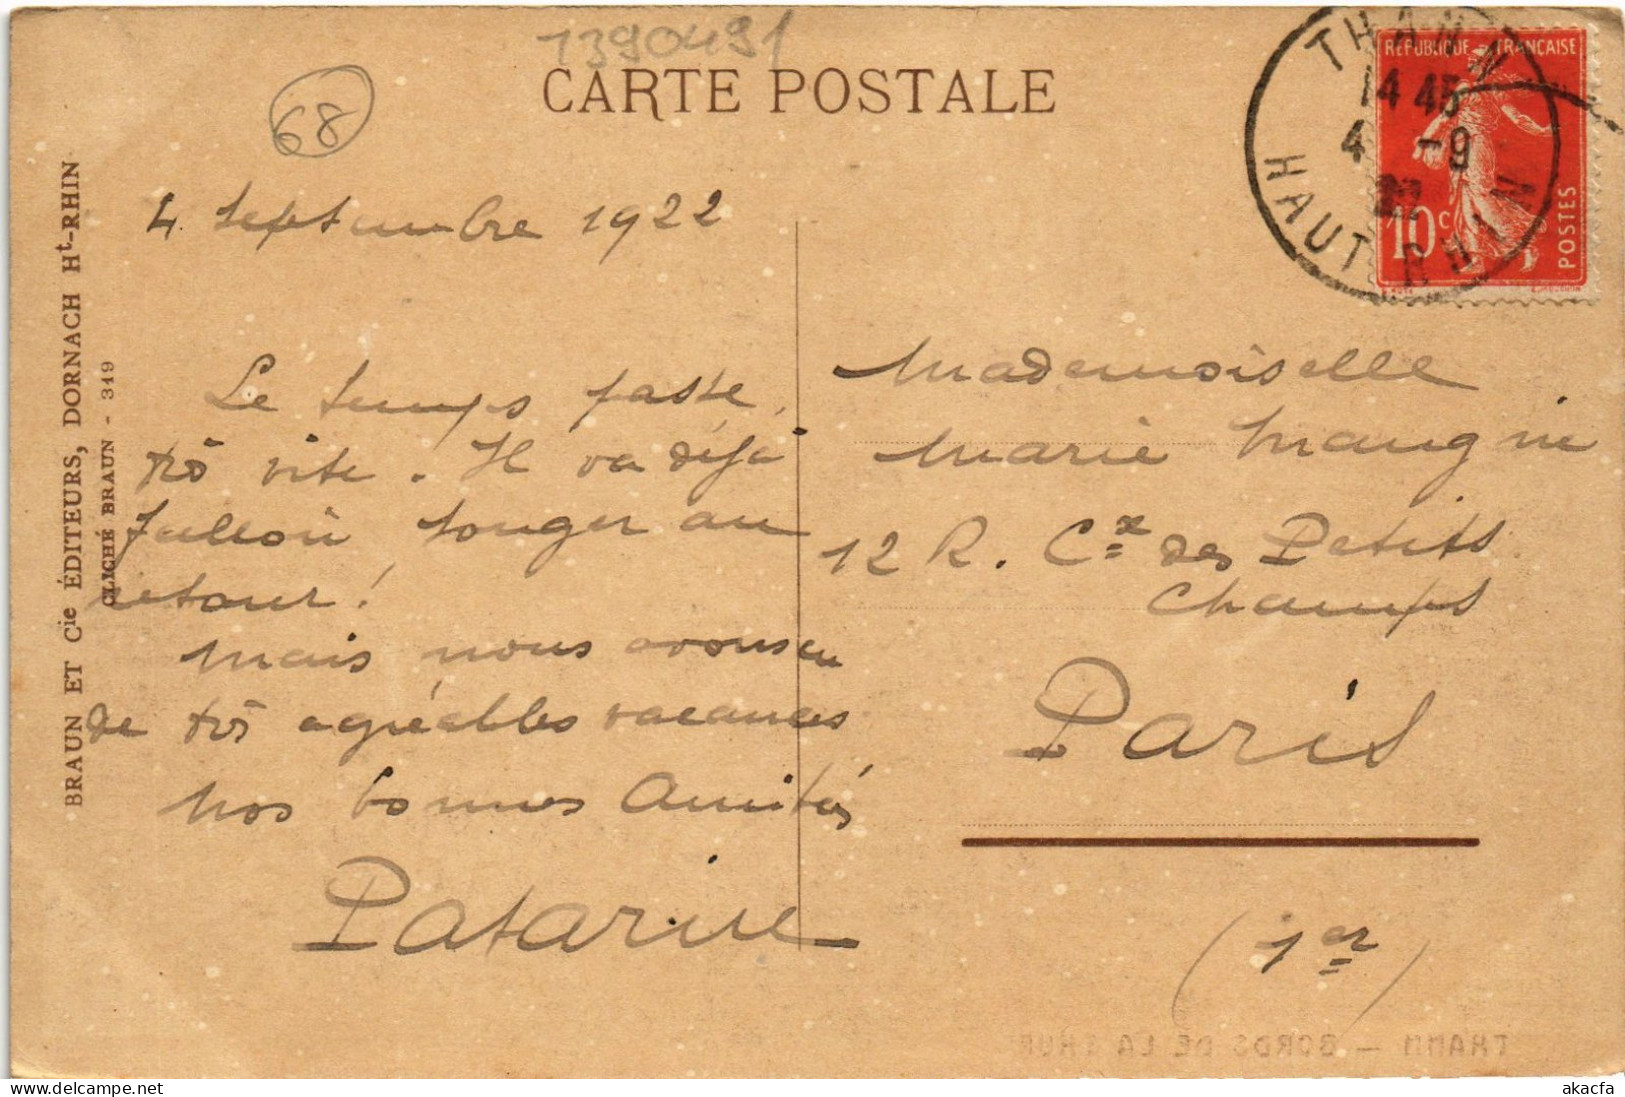 1390491
CARTE POSTALE
68
THANN
14 45
4 -9
22
HAUT-RHIN
REPUBLIQUE FRANCAISE
10c
POSTES
BRAUN ET Cie ÉDITEURS, DORNACH Ht-RHIN
CLICHÉ BRAUN - 349
4 Septembre 1922
Le temps passe
très vite. Il va déjà
falloir songer au
retour!
Mais nous avons eu
de très agréables vacances
Nos bonnes Amitiés
Patarin
Mademoiselle
Marie Maugin
12 R. Cx des Petits
Champs
Paris
(1er)
THANN — BORDS DE LA THUR
akacfa